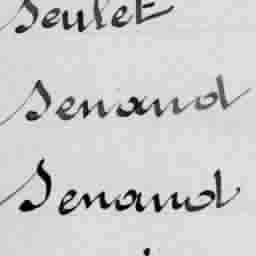 Seulet
Senaud
Senaud